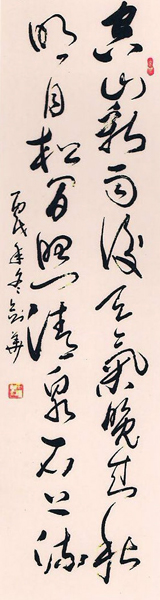 空山新雨後天氣晚來秋
明月松間照清泉石上流
丙戌年冬劍華